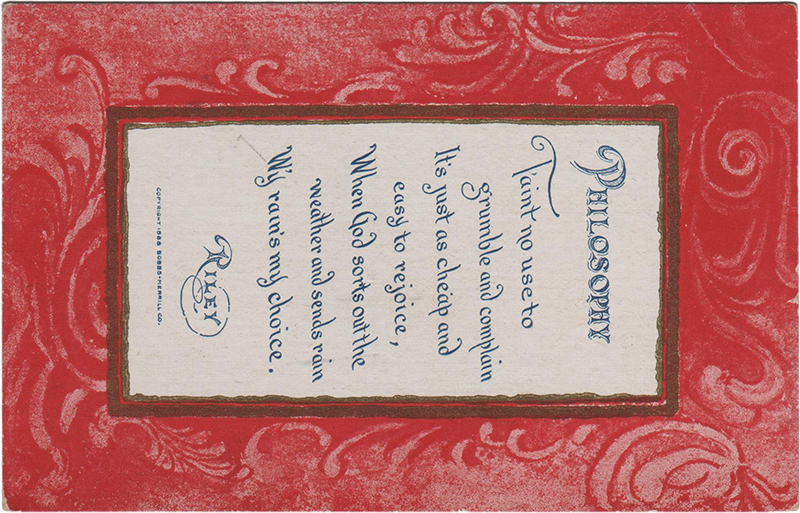 PHILOSOPHY
T'aint no use to
grumble and complain
It's just as cheap and
easy to rejoice,
When God sorts out the
weather and sends rain
W'y rain's my choice.
RILEY
COPYRIGHT·1888 BOBBS-MERRILL CO.